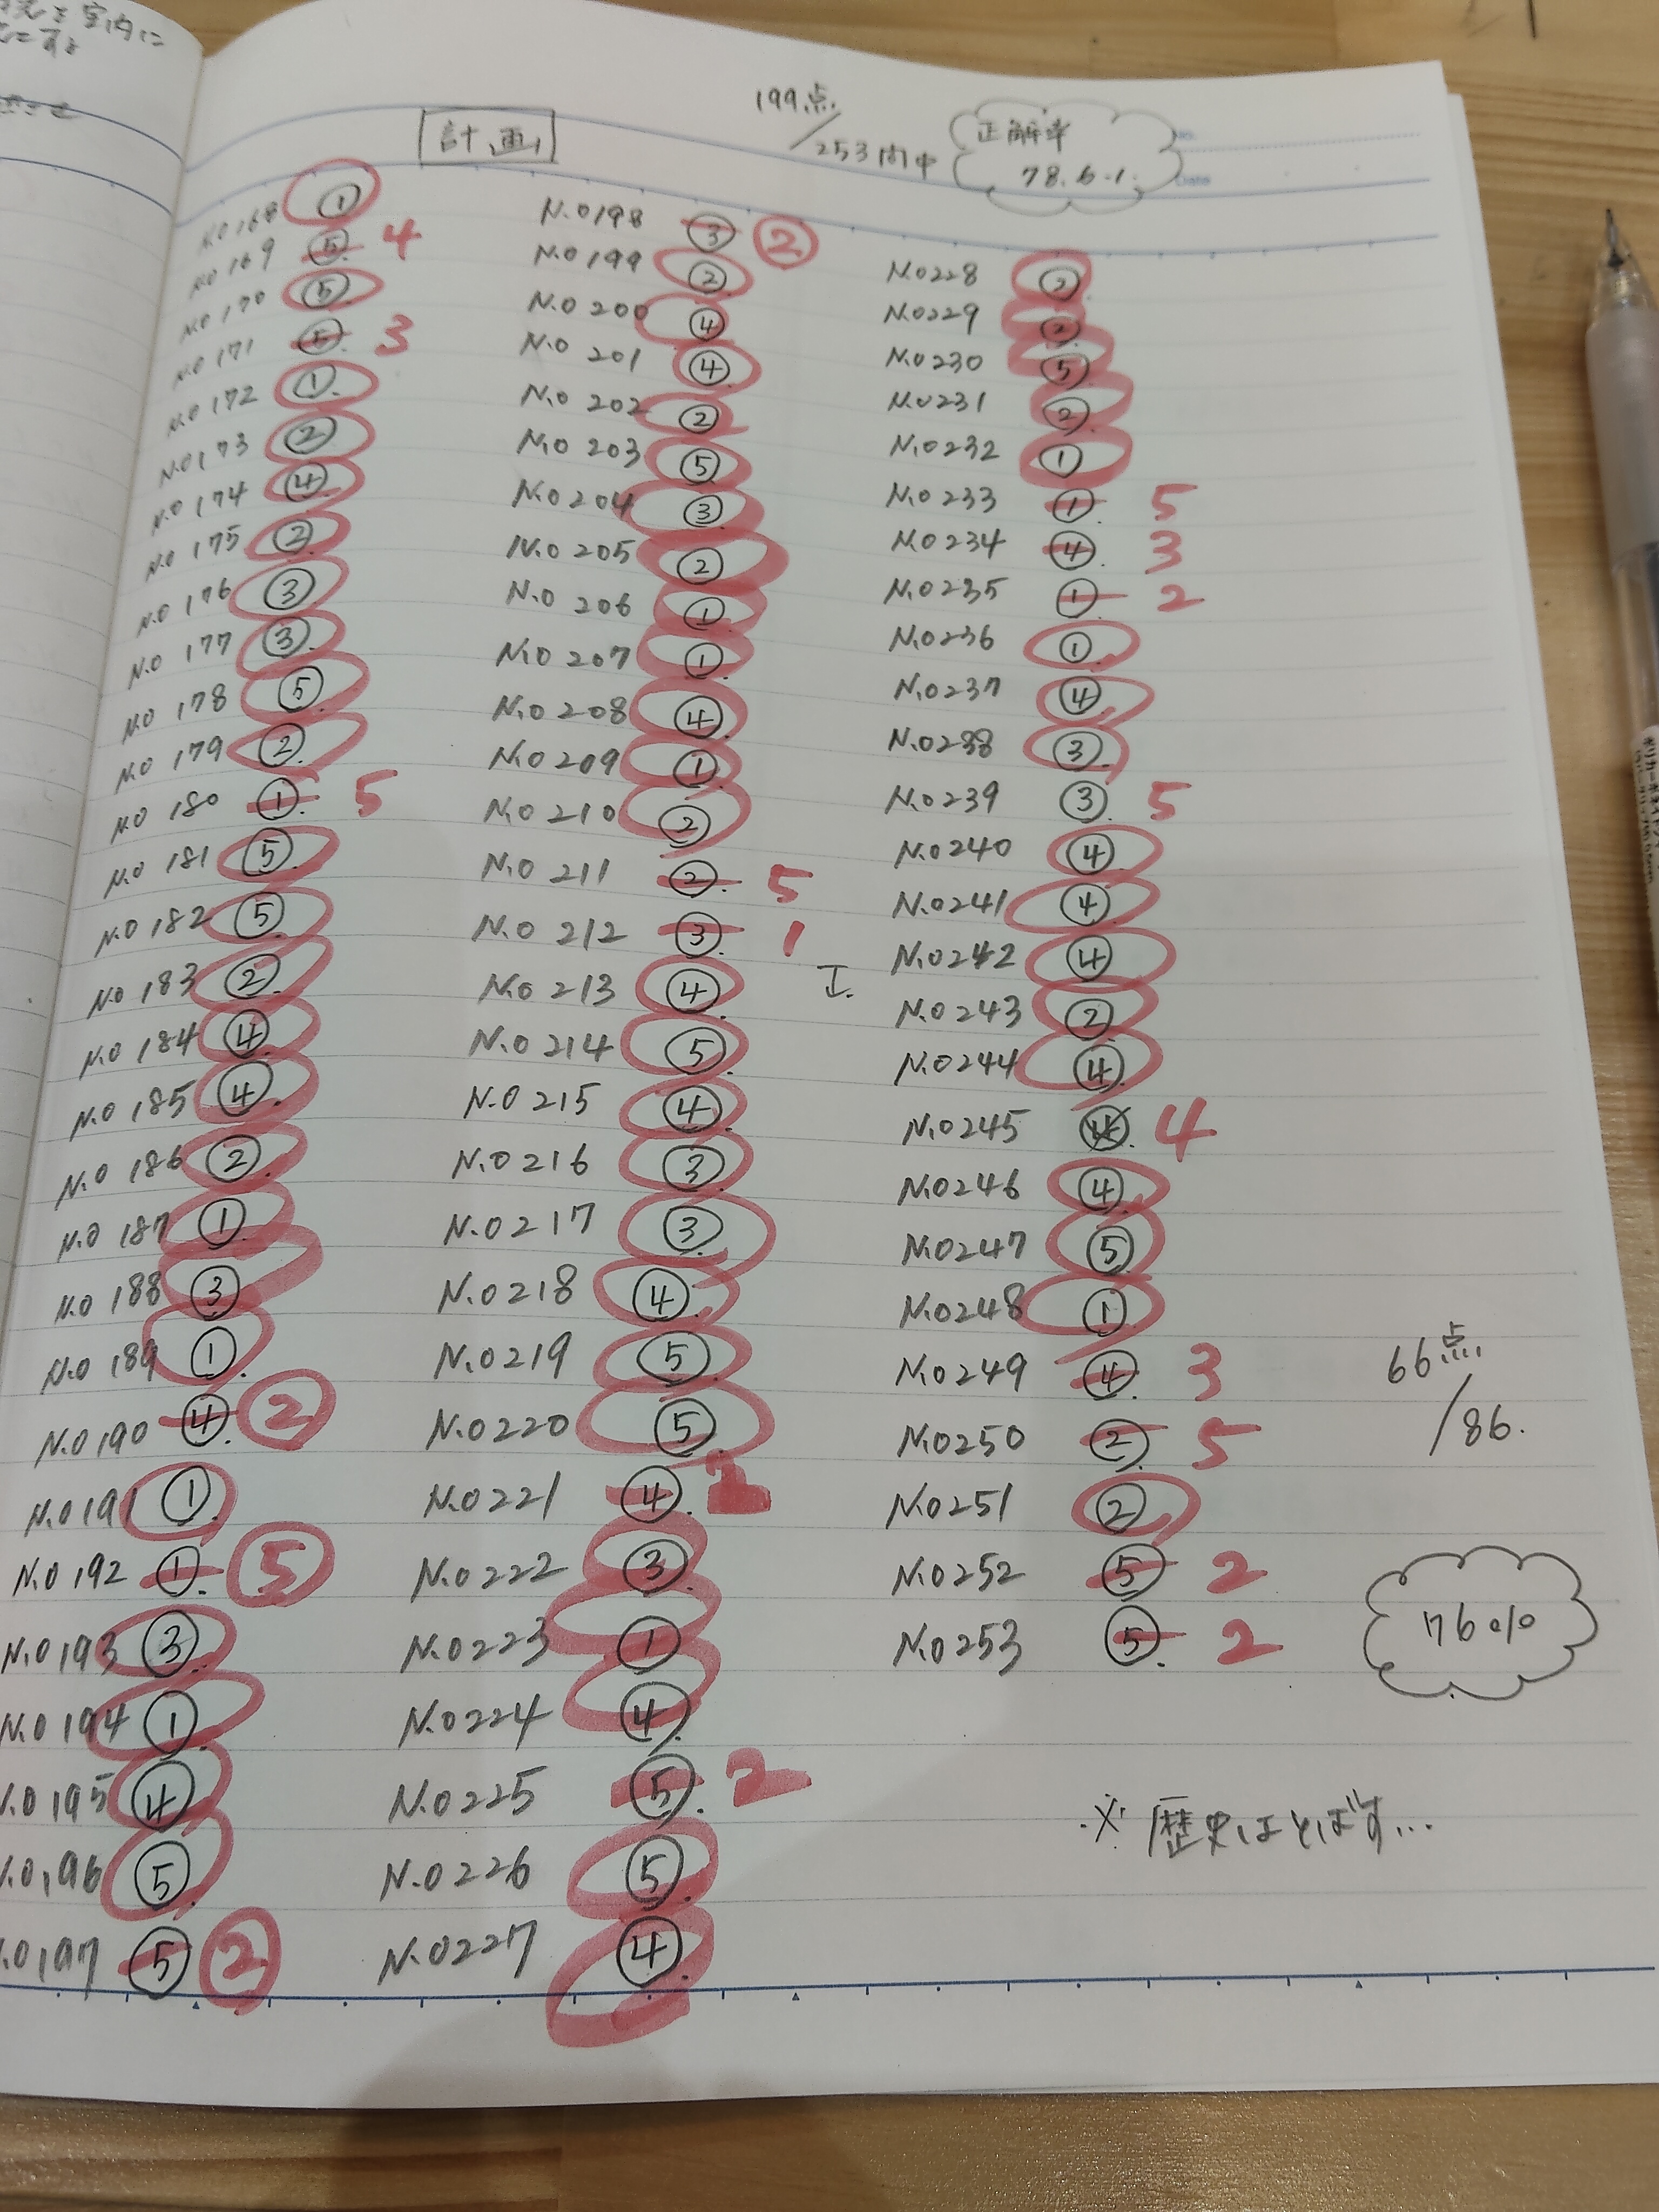 計画
199点/253問中
正解率
78.6%
No168 ①
No169 ⑤ 4
No170 ⑤
No171 ⑤ 3
No172 ①
No173 ②
No174 ④
No175 ②
No176 ③
No177 ③
No178 ⑤
No179 ②
No180 ① 5
No181 ⑤
No182 ⑤
No183 ②
No184 ④
No185 ④
No186 ②
No187 ①
No188 ③
No189 ①
No190 ④ ②
No191 ①
No192 ① ⑤
No193 ③
No194 ①
No195 ④
No196 ⑤
No197 ⑤ ②
No198 ③ ②
No199 ②
No200 ④
No201 ④
No202 ②
No203 ⑤
No204 ③
No205 ②
No206 ①
No207 ①
No208 ④
No209 ①
No210 ②
No211 ② 5
No212 ③ 1
No213 ④
No214 ⑤
No215 ④
No216 ③
No217 ③
No218 ④
No219 ⑤
No220 ⑤
No221 ④
No222 ③
No223 ①
No224 ④
No225 ⑤ 2
No226 ⑤
No227 ④
No228 ②
No229 ②
No230 ⑤
No231 ②
No232 ①
No233 ① 5
No234 ④ 3
No235 ① 2
No236 ①
No237 ④
No238 ③
No239 ③ 5
No240 ④
No241 ④
No242 ④
No243 ②
No244 ④
No245 4
No246 ④
No247 ⑤
No248 ①
No249 ④ 3
No250 ② 5
No251 ②
No252 ⑤ 2
No253 ⑤ 2
66点/86.
76%
※歴史はとばす...